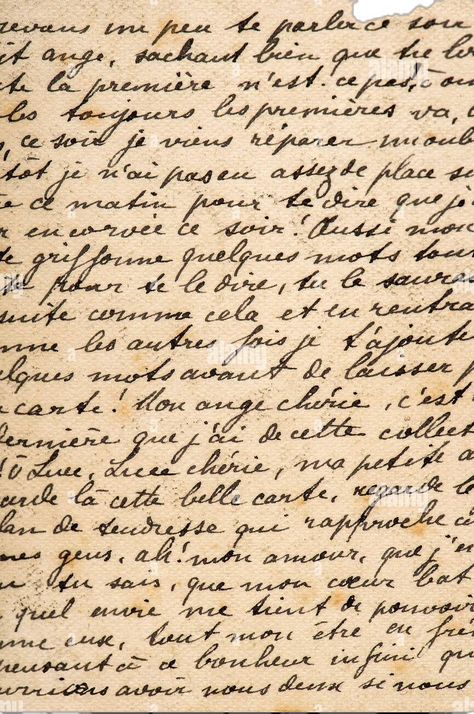 revans un peu te parler ce soir
it ange, sachant bien que tu
te la première n'est-ce pas, à
les toujours les premières va,
, ce soir je viens réparer un oubl
tôt je n'ai pas eu assez de place su
ce matin pour te dire que je
r en corvée ce soir! Aussi mon
te griffonne quelques mots tou
pour te le dire, tu le sauras
suite comme cela et en rentra
me les autres fois je t'ajoute
elques mots avant de laisser p
carte! Mon ange chérie, c'est
dernière que j'ai de cette collect
! ô Luce, Luce chérie, ma petite a
garde là cette belle carte, regarde l
lan de tendresse qui rapproche c
nes gens, ah! mon amour, que j'e
n tu sais, que mon cœur bat
quel envie me tient de pouvoir
me eux, tout mon être en fré
pensant à ce bonheur infini qu
urrions avoir nous deux si nous